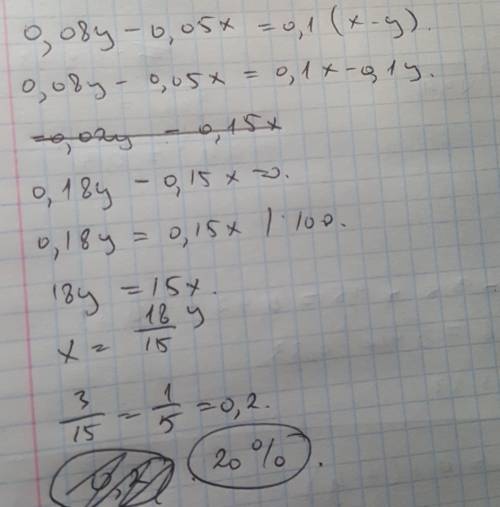 0,08y - 0,05x = 0,1 (x-y).
0,08y - 0,05x = 0,1x - 0,1y.
=0,02y - 0,15x
0,18y - 0,15x = 0.
0,18y = 0,15x | · 100.
18y = 15x.
x = 18/15 y
3/15 = 1/5 = 0,2.
20%.